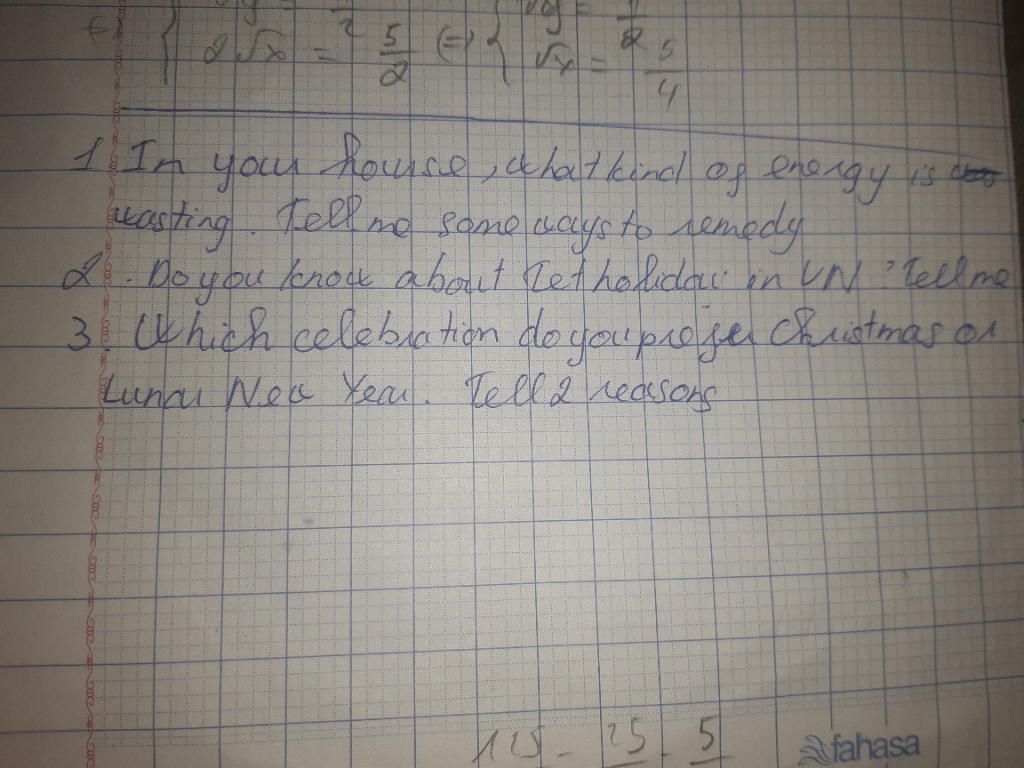 2√x = 5/2 (=) { √x = 5/4
1 In your house, what kind of energy is
wasting. Tell me some ways to remedy
2. Do you know about Tet holidai in VN? Tell me
3. Which celebration do you prefer Christmas or
Lunar New Year. Tell 2 reasons
125 - 25 . 5
fahasa